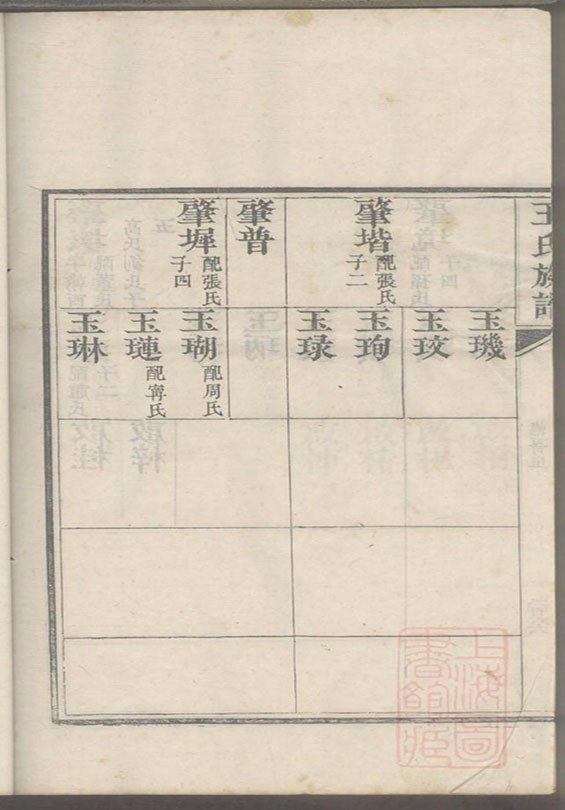 王氏族譜
肇堦配張氏子二
肇普
肇墀配張氏子四
玉璣
玉玟
玉珣
玉琭
玉瑚配周氏
玉璉配甯氏
玉琳
上海圖書館藏